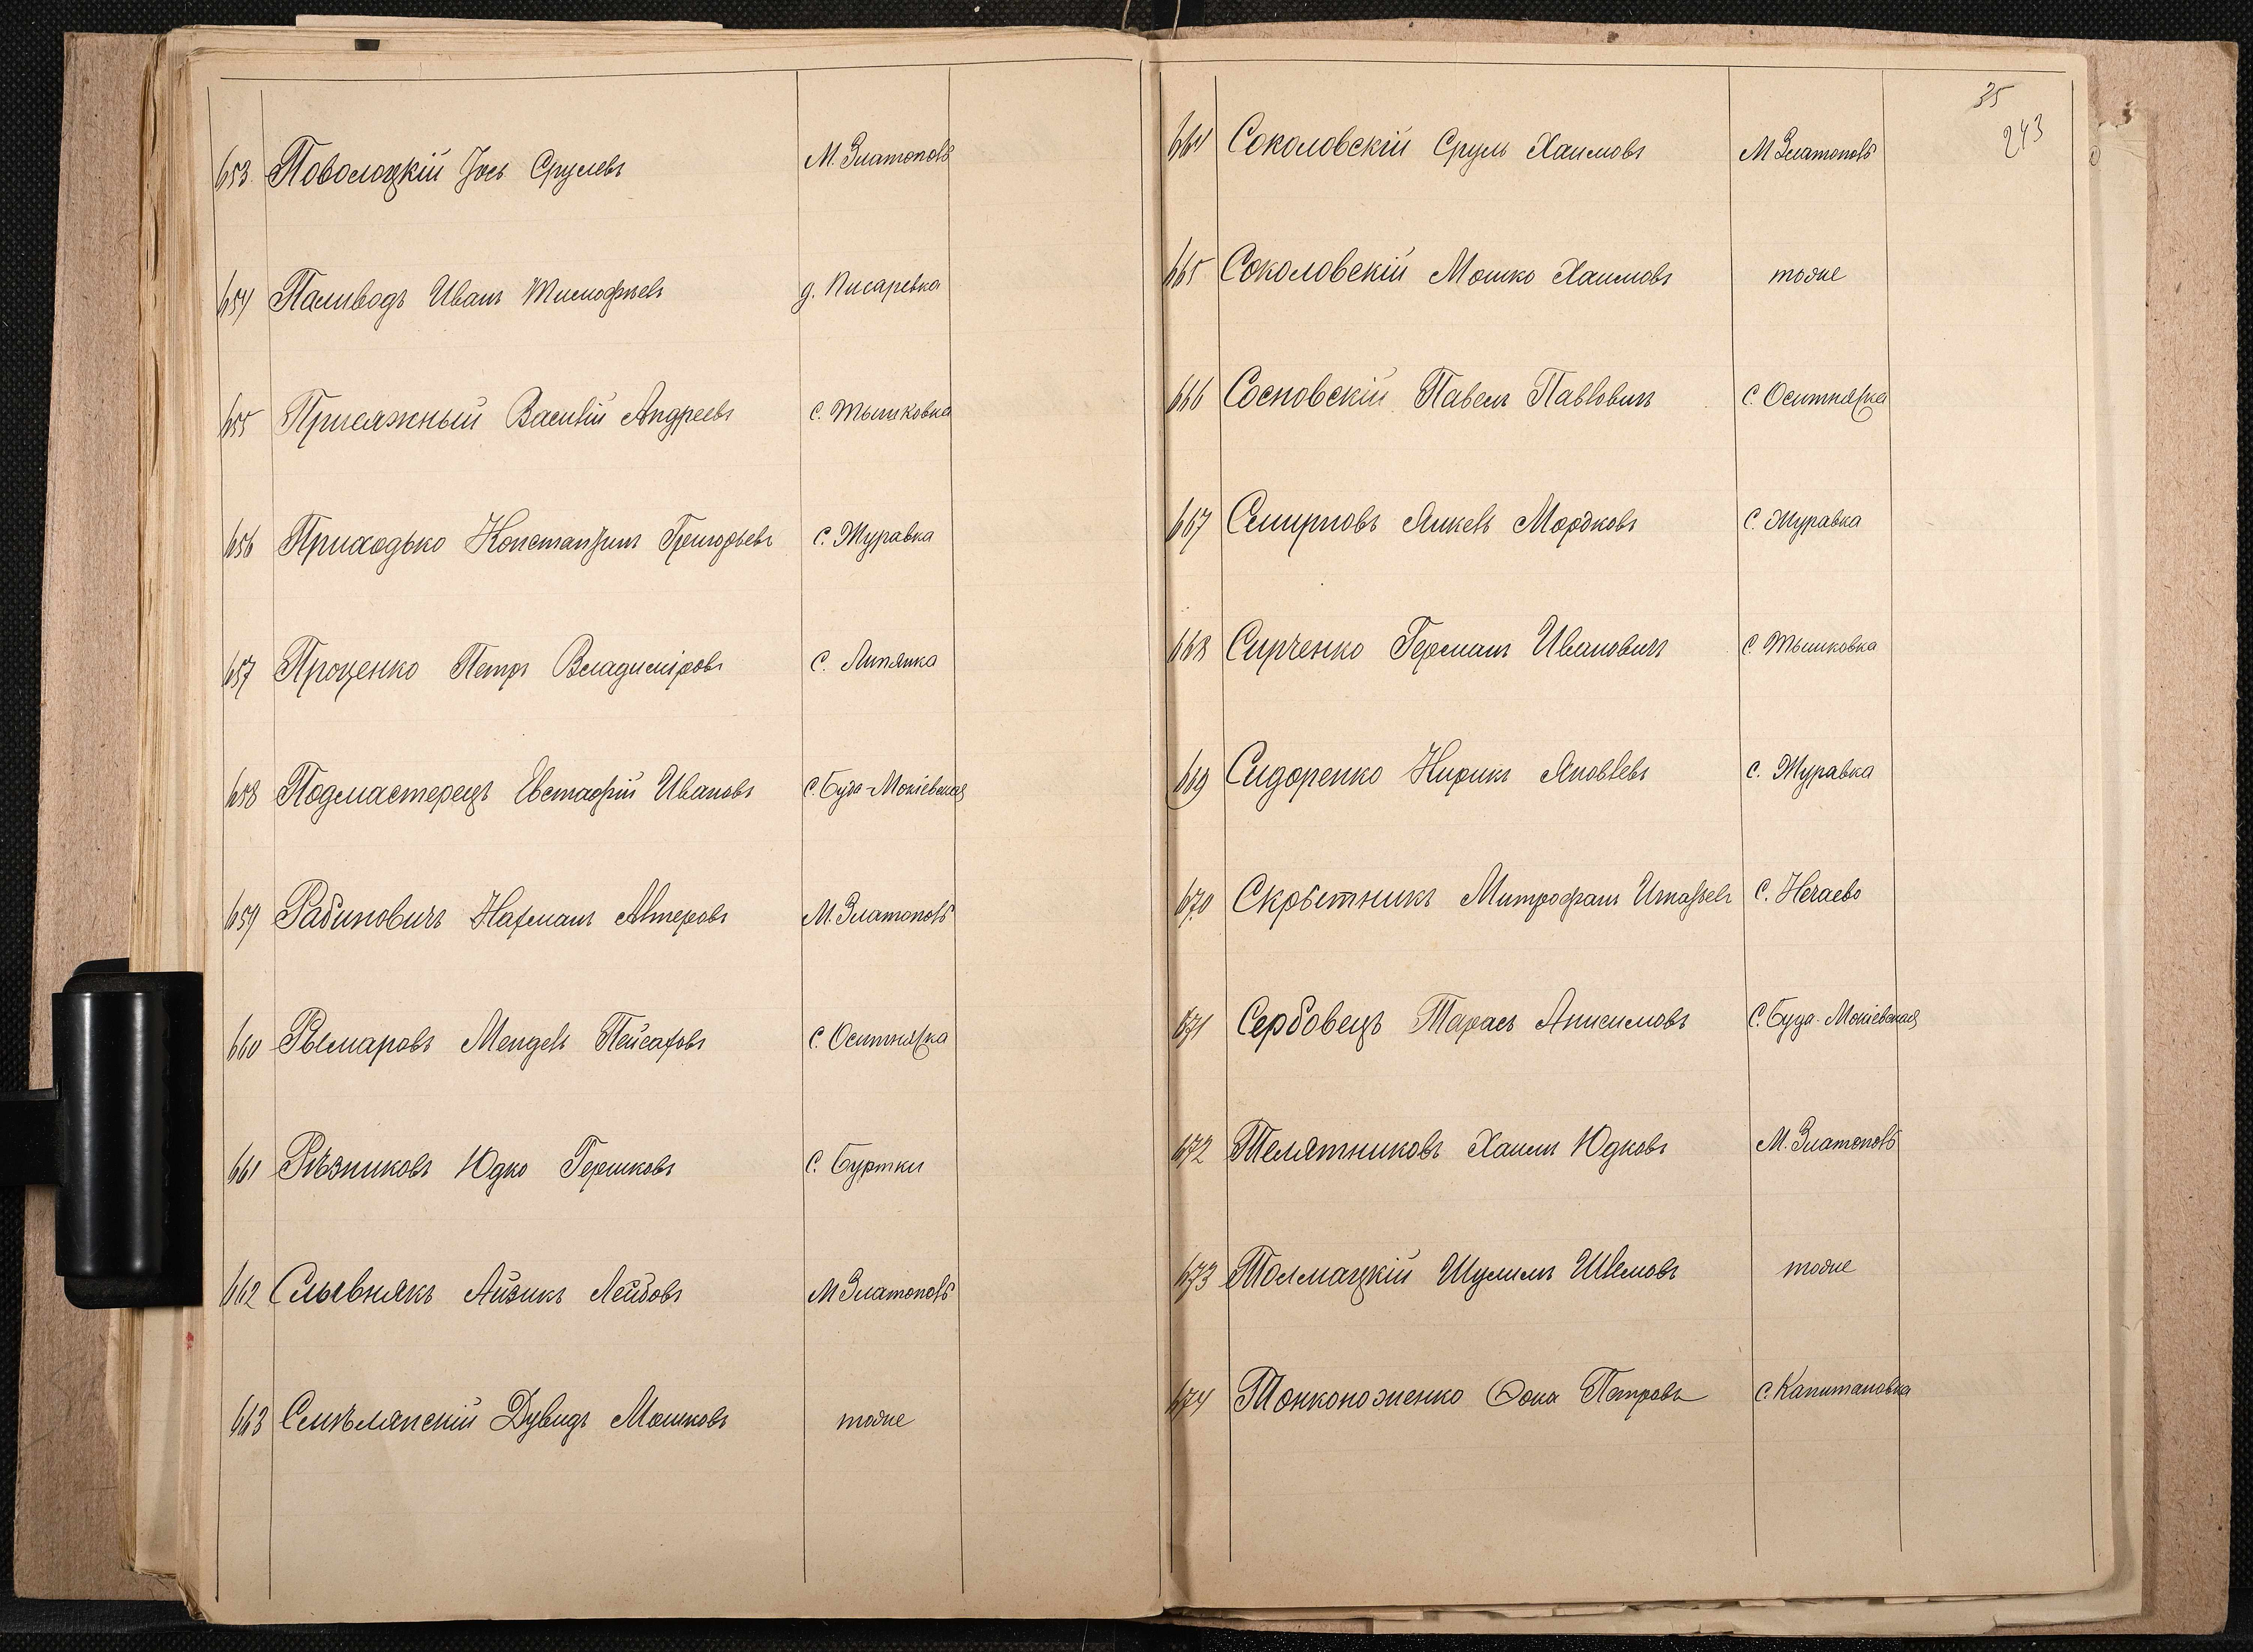 653. Поволоцкій Іось Срулевъ М. Златополь
654 Паливодъ Иванъ Тимофѣевъ д. Писаревка
655 Присяжный Василій Андреевъ С. Тышковка
656 Приходько Константинъ Григорьевъ С. Журавка
657 Проценко Петръ Владиміровъ С. Липянка
658 Подмастерецъ Евстафій Ивановъ С. Буда-Мокіевская
659 Рабиновичъ Нахманъ Алтеровъ М. Златополь
660 Рымаровъ Мендель Пейсаховъ С. Оситняжка
661 Рѣзниковъ Юдко Гершковъ С. Буртки
662 Слывнякъ Айзикъ Лейбовъ М Златополь
663 Смѣлянскій Дувидъ Мошковъ тоже
35
243
664 Соколовскій Сруль Хаимовъ М Златополь
665 Соколовскій Мошко Хаимовъ тоже
666 Сосновскій Павелъ Павловичъ С. Оситняжка
667 Смирновъ Янкель Мордковъ С. Журавка
668 Сирченко Германъ Ивановичъ С Тышковка
669 Сидоренко Кирикъ Яковлевъ С. Журавка
670 Скрѣтникъ Митрофанъ С. Нечаево
671 Сербовецъ Тарасъ Анисимовъ С. Буда-Мокіевская
672 Телятниковъ Хаимъ Юдковъ М. Златополь
673 Толмацкій Шулимъ Шлемовъ тоже
674 Тонконоженко Фока Петровъ С. Капитановка